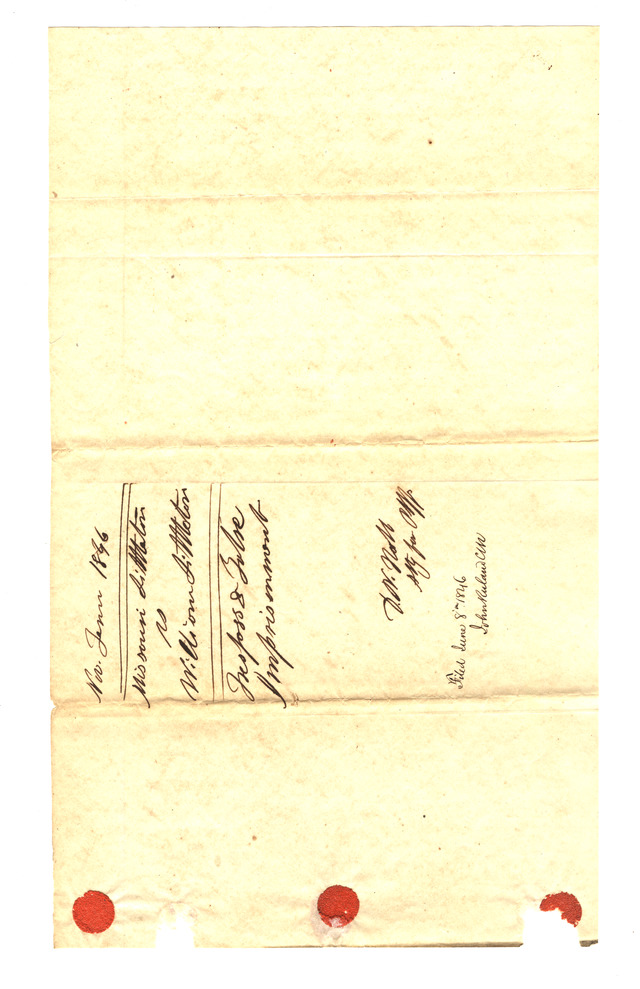 Nov. Term 1846
Missouri Littleton
vs
William Littleton
Trespass & False
Imprisonment
Atty for Plff.
Filed June 8th 1846
John Ruland Clk